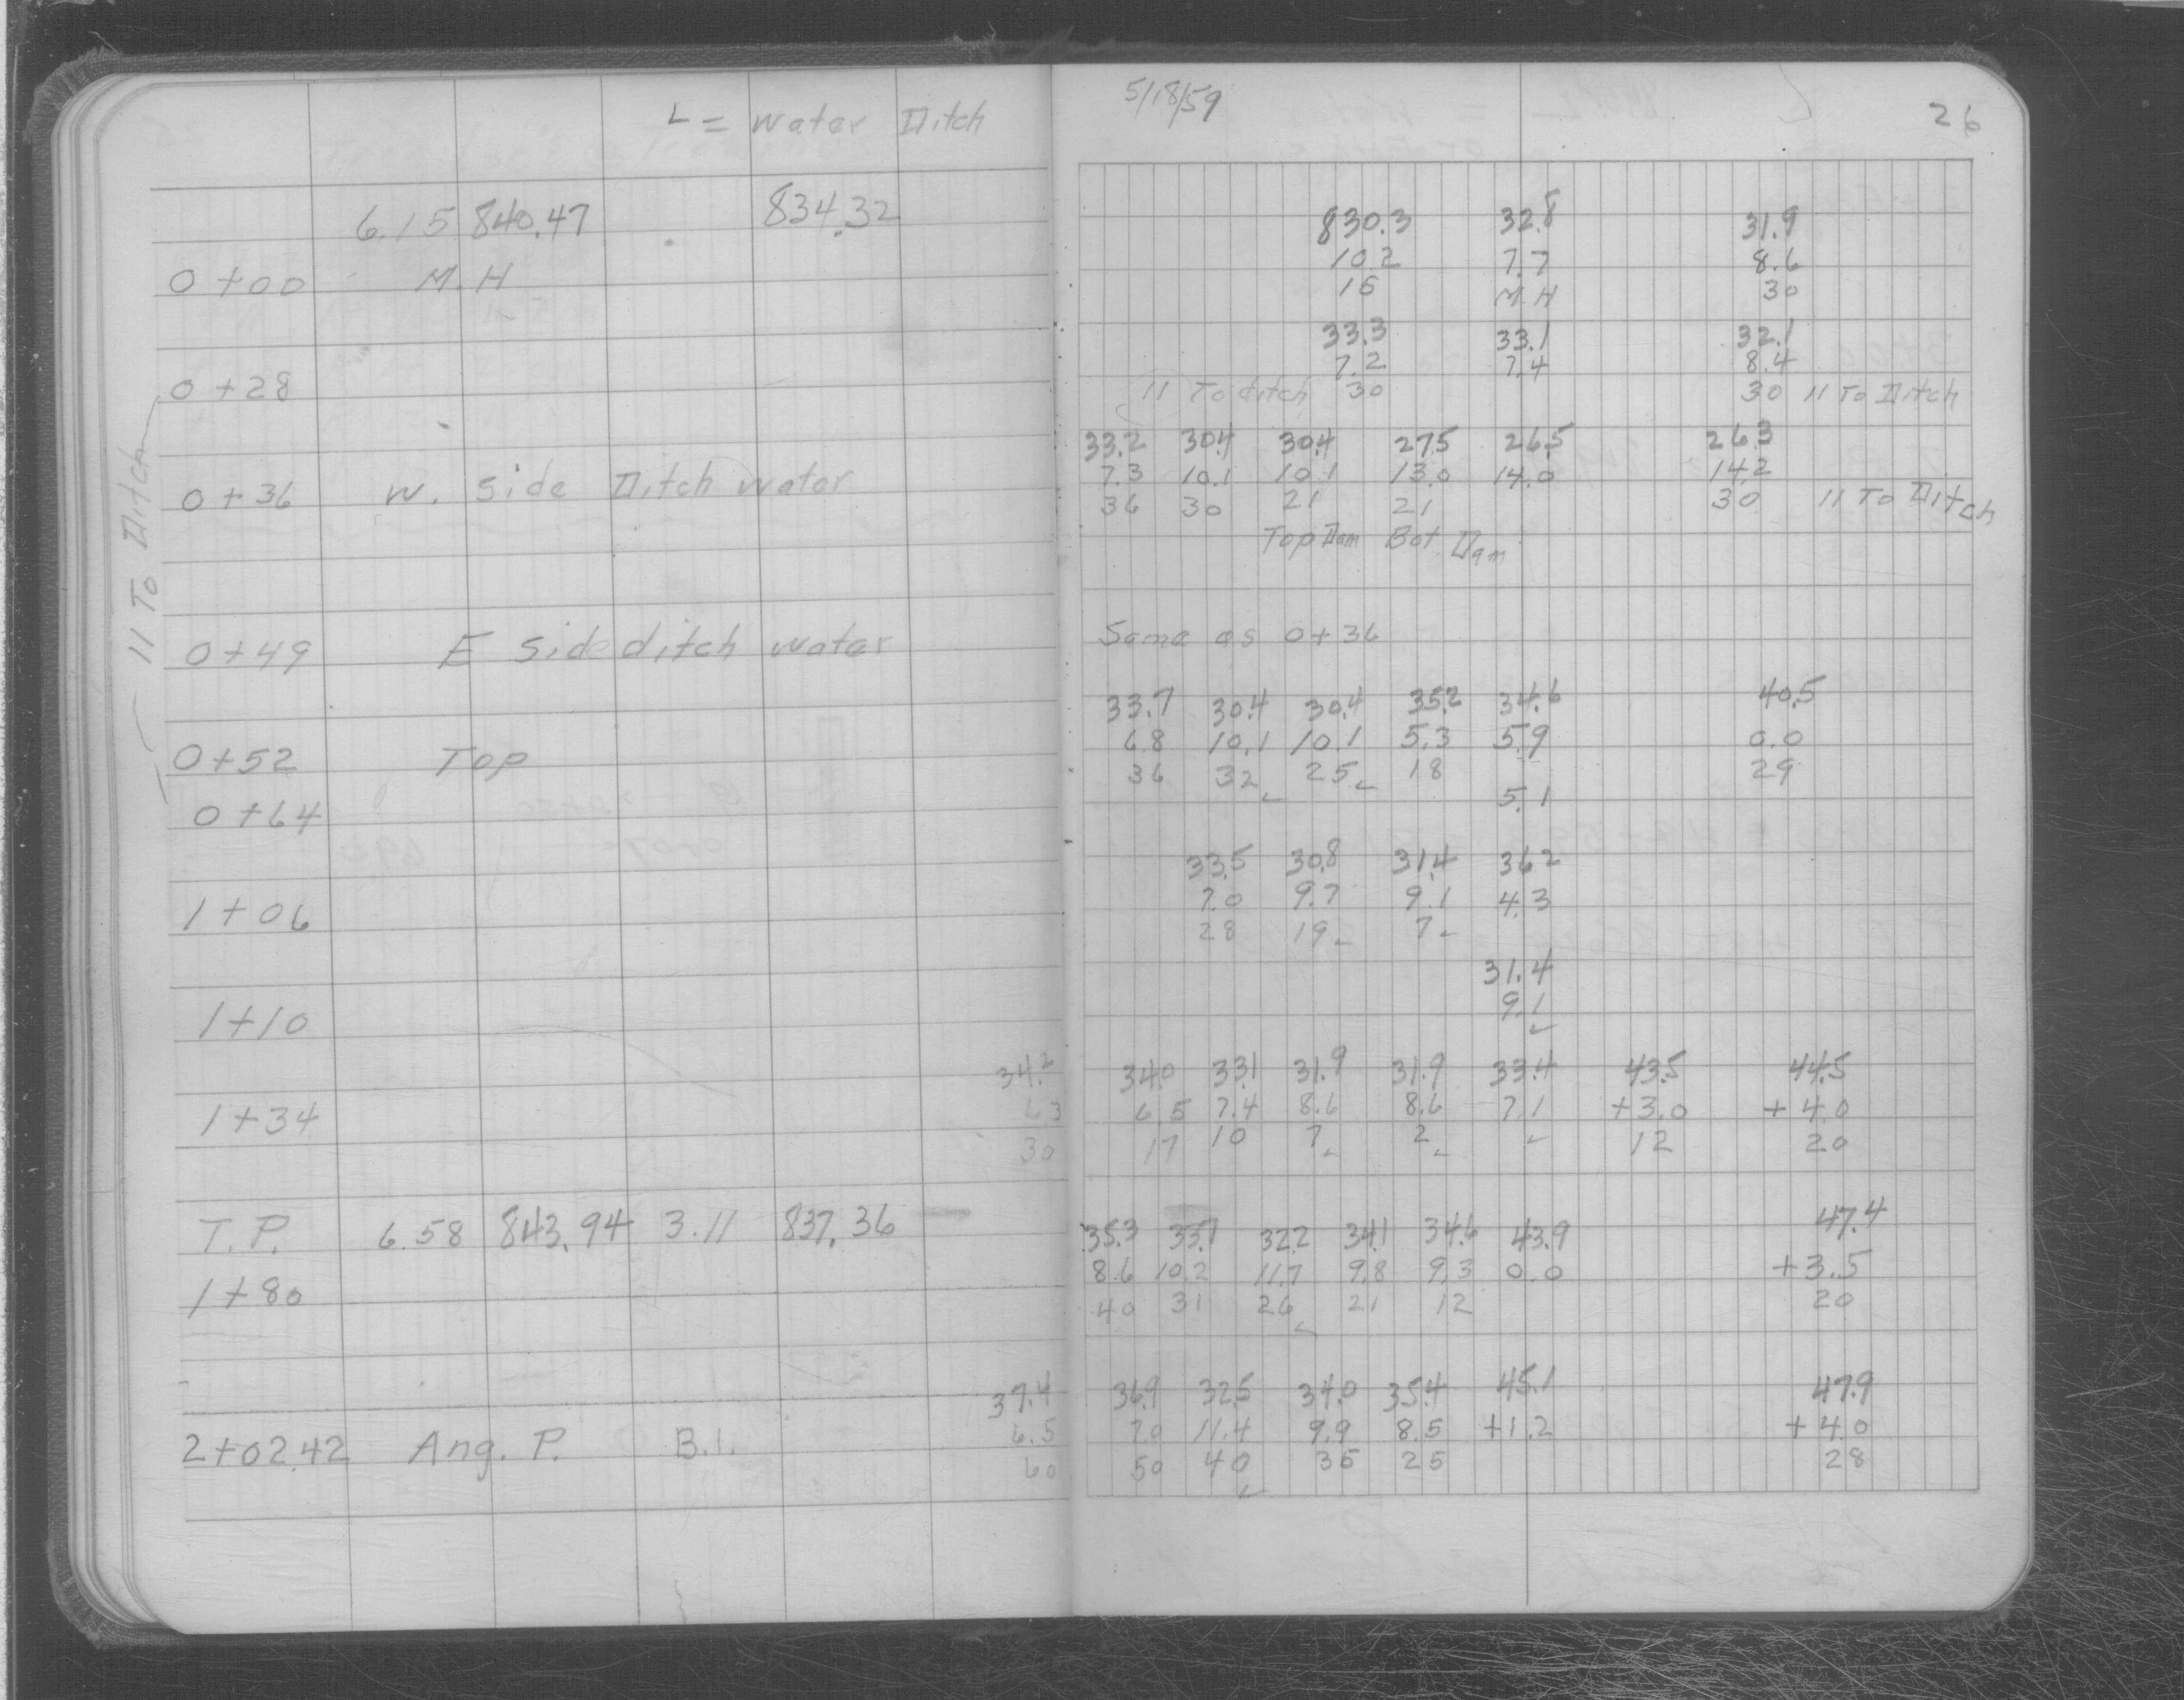 ∟ = water Ditch
6.15 840.47 834.32
0+00 M.H
0+28
0+36 W. side Ditch water
0+49 E side ditch water
0+52 Top
0+64
1+06
1+10
1+34
T.P. 6.58 843.94 3.11 837.36
1+80
2+02.42 Ang. P. B.I.
11 To Ditch
5/18/59
26
830.3 32.8 31.9
10.2 7.7 8.6
15 M H 30
33.3 33.1 32.1
7.2 7.4 8.4
11 To ditch 30 30 11 To Ditch
33.2 30.4 30.4 27.5 26.5 26.3
7.3 10.1 10.1 13.0 14.0 14.2
36 30 21 21 30 11 To Ditch
Top Dam Bot Dam
Same as 0+36
33.7 30.4 30.4 35.2 34.6 40.5
6.8 10.1 10.1 5.3 5.9 0.0
36 32 25 18 29
5.1
33.5 30.8 31.4 36.2
7.0 9.7 9.1 4.3
28 19 7
31.4
9.1
34.2 34.0 33.1 31.9 31.9 33.4 43.5 44.5
6.3 6.5 7.4 8.6 8.6 7.1 +3.0 +4.0
30 17 10 7 2 12 20
35.3 33.7 32.2 34.1 34.6 43.9 47.4
8.6 10.2 11.7 9.8 9.3 0.0 +3.5
40 31 26 21 12 20
37.4 36.9 32.5 34.0 35.4 45.1 47.9
6.5 7.0 11.4 9.9 8.5 +1.2 +4.0
60 50 40 35 25 28